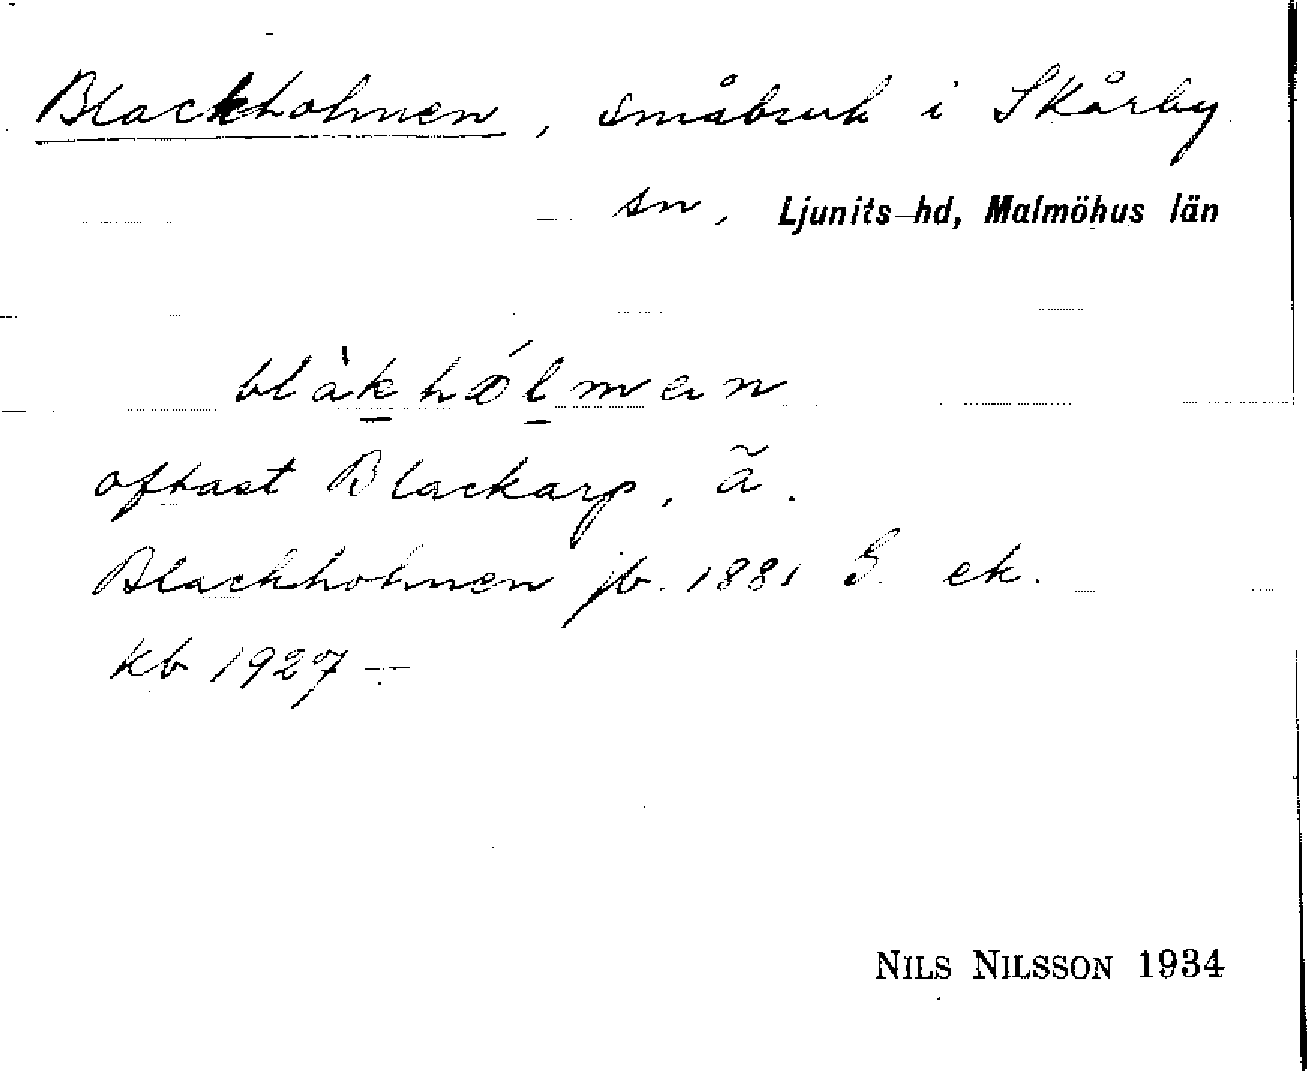 Blackholmen, småbruk i Skårby
sn, Ljunits hd, Malmöhus län
blàkhólmen
oftast Blackarp, ã.
Blackholmen jb. 1881 S. ek.
kb 1927 –
NILS NILSSON 1934